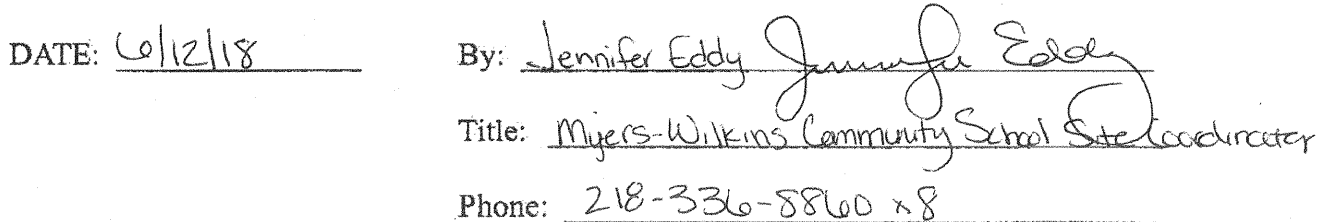 DATE: 6/12/18 By: Jennifer Eddy Jennifer Eddy
Title: Myers-Wilkins Community School Site Coordinator
Phone: 218-336-8860 x8